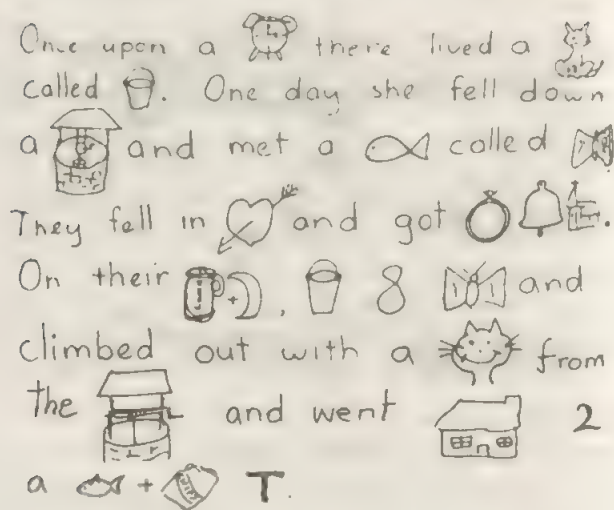 Once upon a there lived a
called . One day she fell down
a and met a called
They fell in and got .
On their + , 8 and
climbed out with a from
the and went 2
a + T.